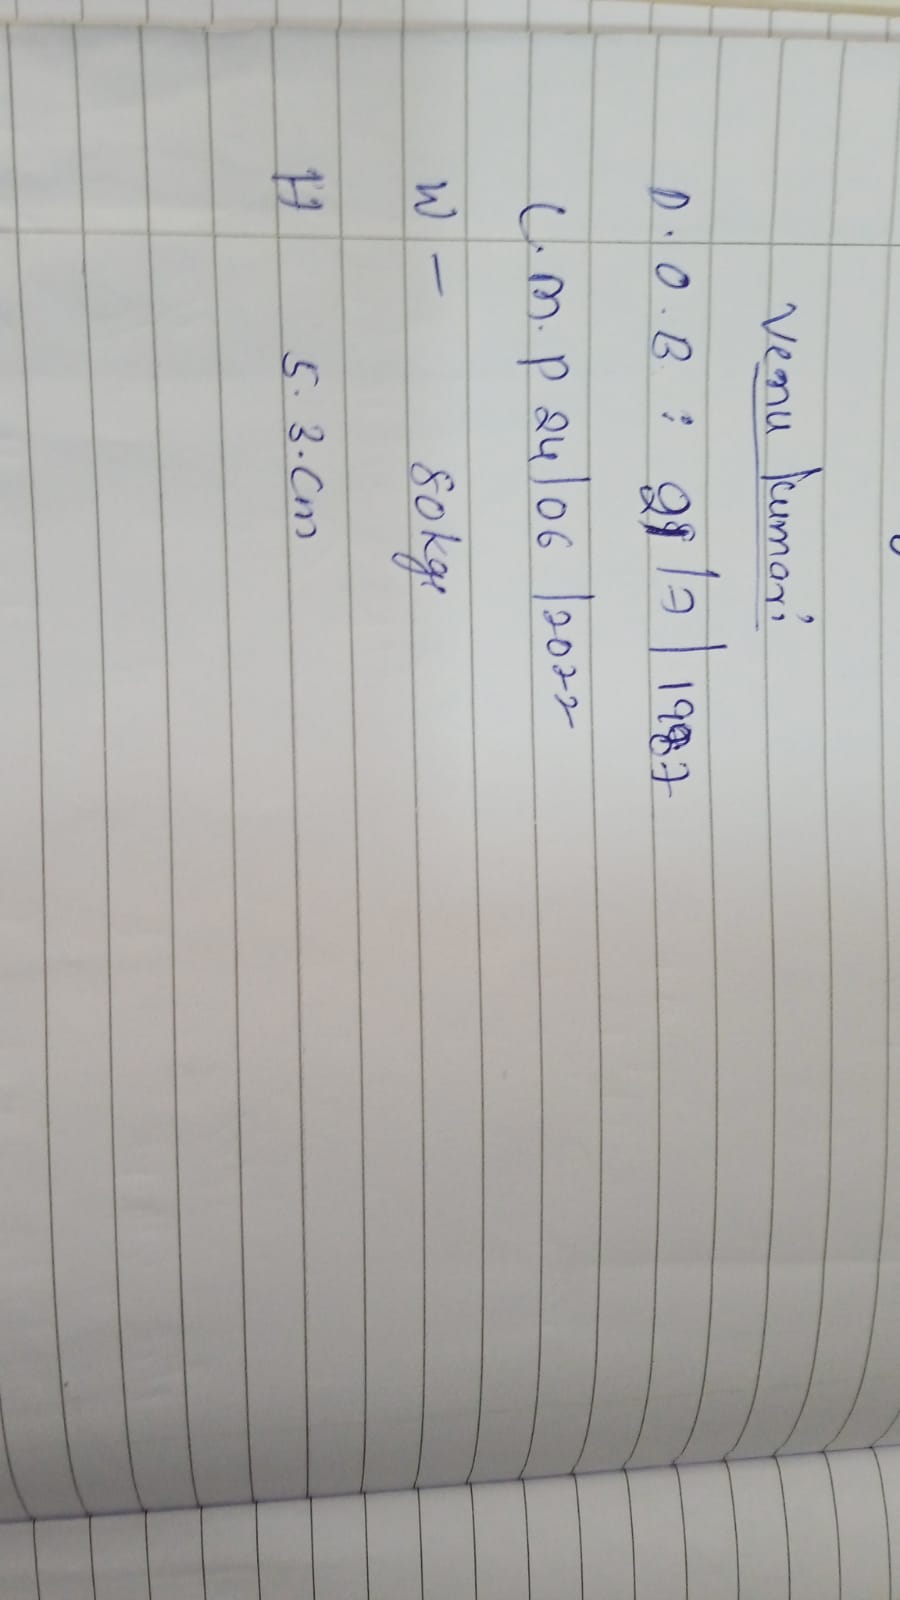 Venu kumari
D.O.B : 28/7/1987
L.M.P 24/06/2022
W - 80kgs
H 5.3.cm